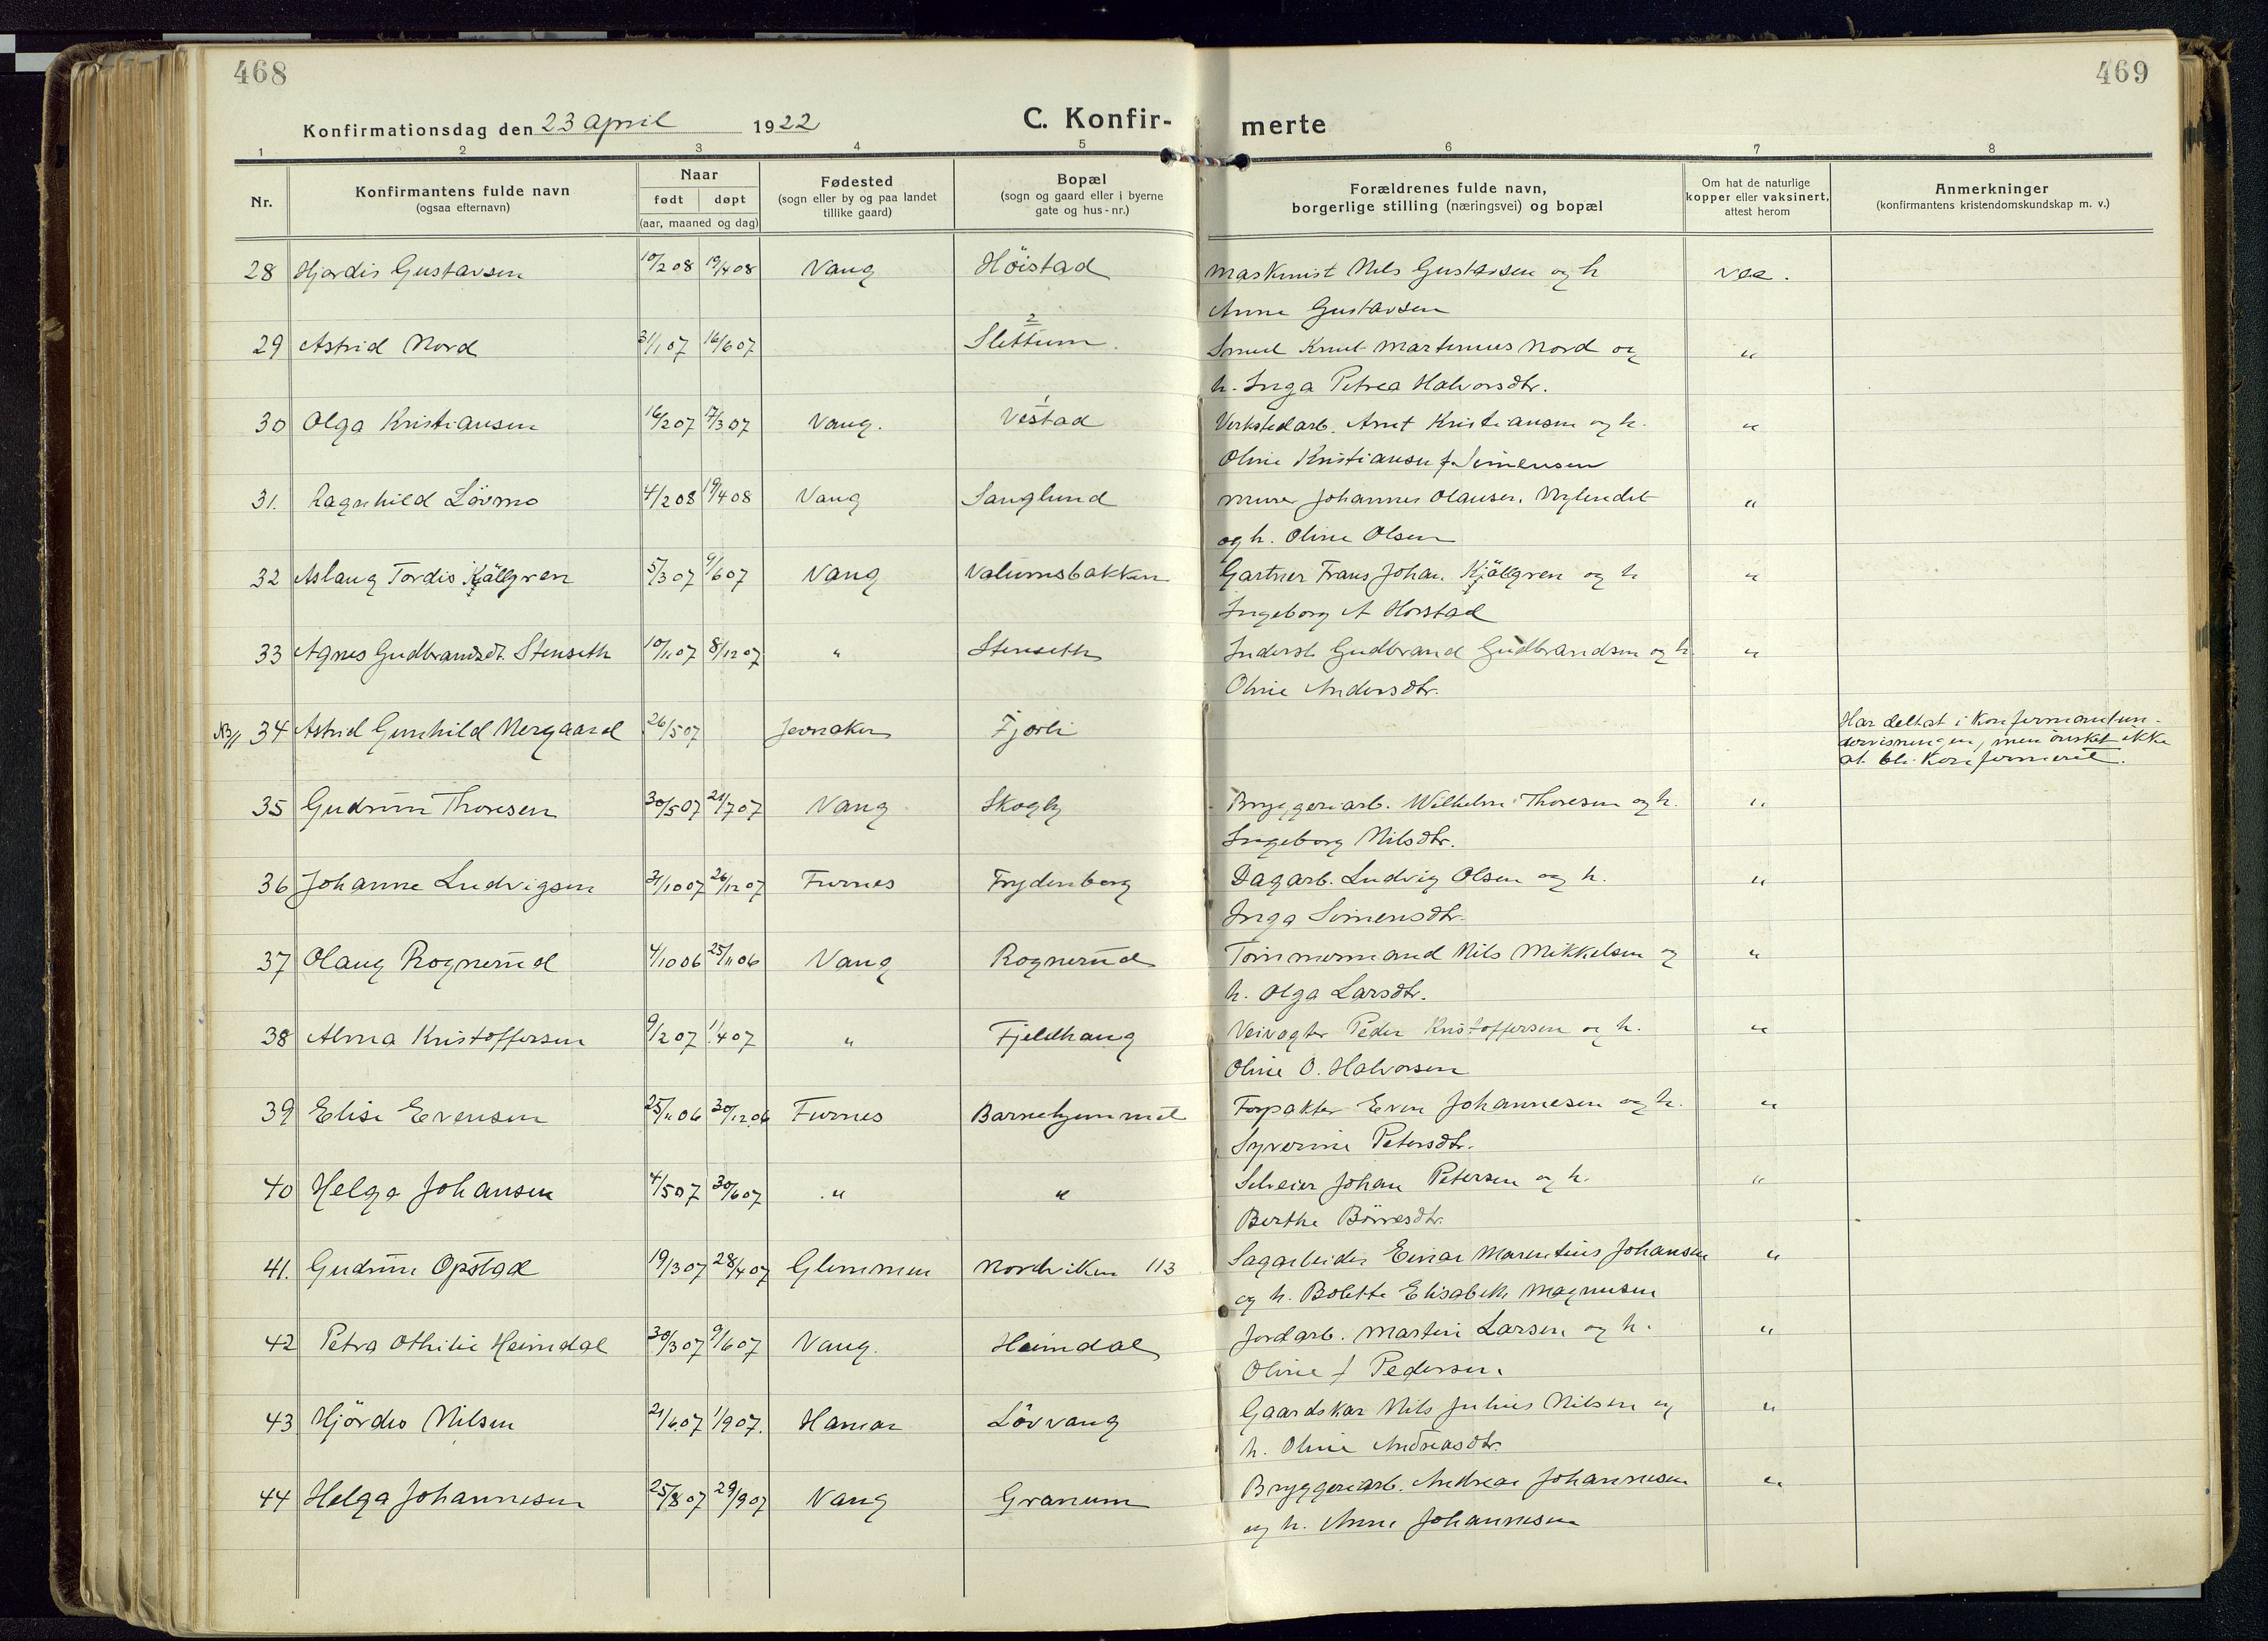 468
469
Konfirmationsdag den 23 april 1922
C. Konfir-merte
1 2 3 4 5 6 7 8
Nr.
Konfirmantens fulde navn
(ogsaa efternavn)
Naar
født døpt
(aar, maaned og dag)
Fødested
(sogn eller by og paa landet
tillike gaard)
Bopæl
(sogn og gaard eller i byerne
gate og hus-nr.)
Forældrenes fulde navn,
borgerlige stilling (næringsvei) og bopæl
Om hat de naturlige
kopper eller vaksinert,
attest herom
Anmerkninger
(konfirmantens kristendomskundskap m. v.)
28 Hjordis Gustavsen 10/2 08 19/4 08 Vang Höistad Maskinist Nils Gustavsen og h vac.
Anna Gustavsen
29 Astrid Nord 31/1 07 16/6 07 2 Slettum. Smed Knut Martinius Nord og "
h. Inga Petrea Halvorsdtr.
30 Olga Kristiansen 16/2 07 17/3 07 Vang. 1 Vestad Verkstedarb. Arnt Kristiansen og h. "
Oline Kristiansen f. Simensen
31. Ragnhild Lövmo 4/2 08 19/4 08 Vang Sanglund Murer Johannes Olausen, Nylendet "
og h. Oline Olsen
32 Aslaug Tordis Kjällgren 5/3 07 9/6 07 Vang Valumsbakken Gartner Frans Johan Kjällgren og h "
Ingeborg A Horstad
33 Agnes Gudbrandsdt. Stenseth 10/11 07 8/12 07 " Stenseth Inderst Gudbrand Gudbrandsen og h. "
Oline Andersdtr.
NB// 34 Astrid Gunhild Nergaard 26/5 07 Jevnaker Fjorli Har deltat i konfirmantun-
dervisningen, men önsket ikke
at bli konfirmeret.
35 Gudrun Thoresen 30/5 07 21/7 07 Vang Skogly Bryggeriarb. Wilhelm Thoresen og h. "
Ingeborg Nilsdtr.
36 Johanne Ludvigsen 31/10 07 26/12 07 Furnes Frydenberg Dagarb. Ludvig Olsen og h. "
Inga Simensdtr.
37 Olaug Rognerud 4/10 06 25/11 06 Vang Rognerud Tömmermand Nils Mikkelsen og "
h. Olga Larsdtr.
38 Alma Kristoffersen 9/2 07 1/4 07 " Fjeldhaug Veivogter Peder Kristoffersen og h. "
Oline O. Halvorsen
39 Elise Evensen 25/11 06 30/12 06 Furnes Barnehjemmet Forpakter Even Johannesen og h. "
Syverine Petersdtr.
40 Helga Johansen 4/5 07 30/6 07 " " Selveier Johan Petersen og h. "
Berthe Börresdtr.
41. Gudrun Opstad 19/3 07 28/4 07 Glemmen Nordviken 113 Sagarbeider Einar Marentius Johansen "
og h. Bolette Elisabeth Magnusen
42 Petra Othilie Heimdal 30/3 07 9/6 07 Vang. Heimdal Jordarb. Martin Larsen og h. "
Oline f Pedersen.
43 Hjördis Nilsen 21/6 07 1/9 07. Hamar Lövvang Gaardskar Nils Julius Nilsen og "
h. Oline Andreasdtr.
44 Helga Johannesen 25/8 07 29/9 07 Vang Granum Bryggeriarb. Andreas Johannesen "
og h. Anne Johannesen